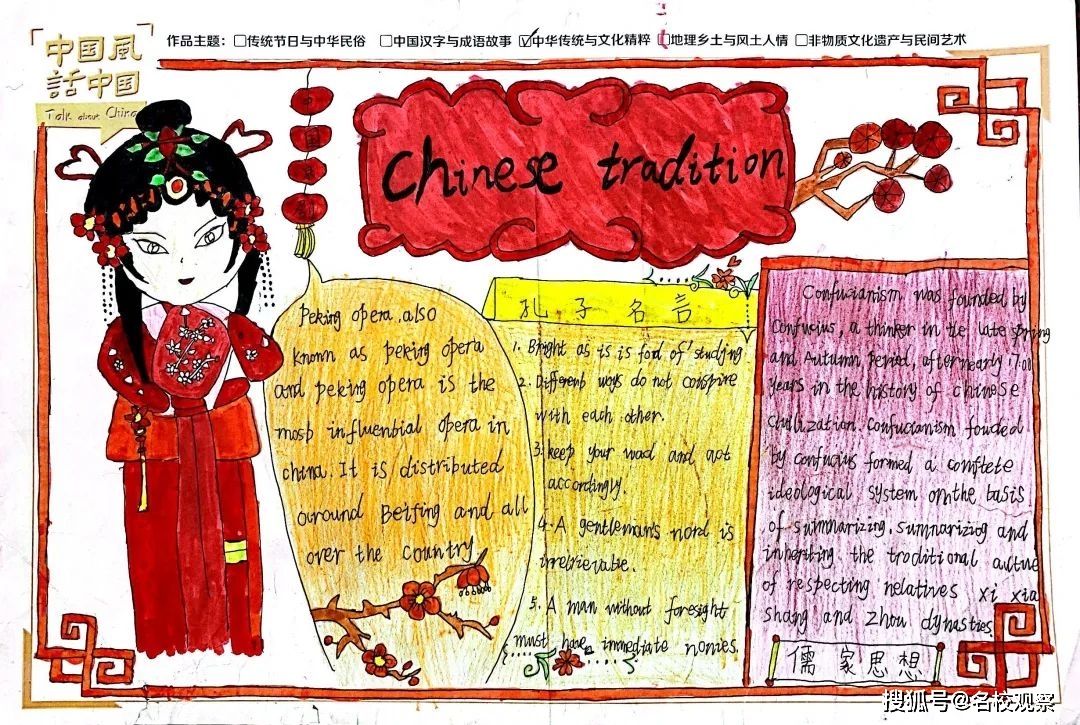 中国風
話中国
Talk about China
作品主题：□传统节日与中华民俗 □中国汉字与成语故事 ☑中华传统与文化精粹 □地理乡土与风土人情 □非物质文化遗产与民间艺术
Chinese tradition
Peking opera, also
known as peking opera
and peking opera is the
most influential opera in
china. It is distributed
around Beijing and all
over the country
孔子名言
1. Bright as is is fond of studing
2. Different ways do not conspire
with each other.
3. keep your word and act
accordingly.
4. A gentleman's nord is
irretrievable.
5. A man without foresight
must have immediate nories.
Confucianism was founded by
Confucius, a thinker in the late spring
and Autumn period, after nearly 1700
years in the history of chinese
civilization. Confucianism fouded
by confucius formed a complete
ideological system on the basis
of summarizing, summarizing and
inheriting the traditional culture
of respecting relatives xi xia
shang and zhou dynasties.
儒家思想
搜狐号@名校观察